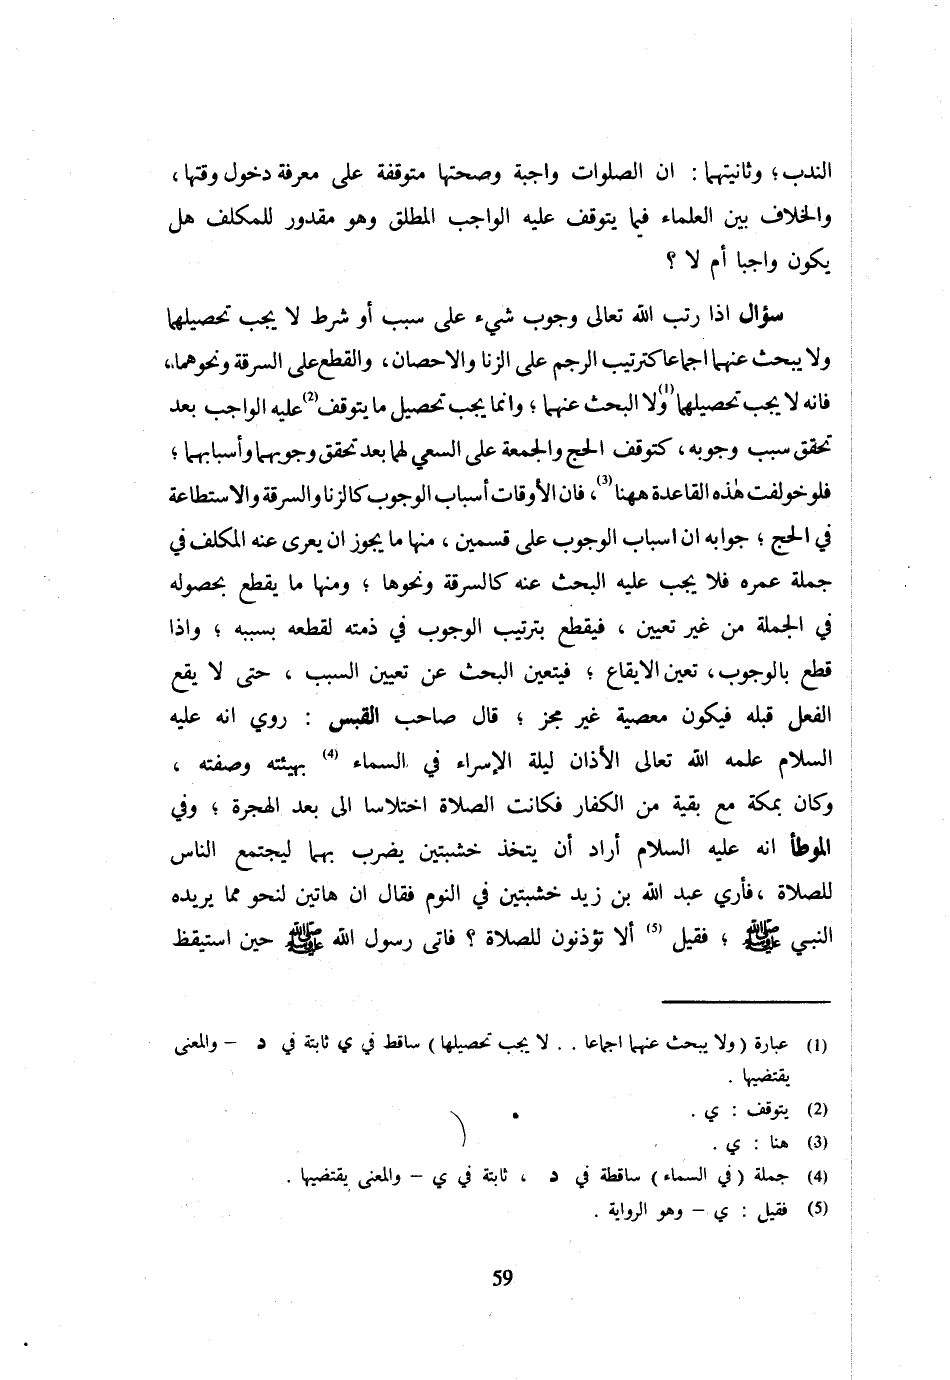 الندب؛ وثانيتهما: ان الصلوات واجبة وصحتها متوقفة على معرفة دخول وقتها،
والخلاف بين العلماء فيما يتوقف عليه الواجب المطلق وهو مقدور للمكلف هل
يكون واجبا أم لا ؟
سؤال اذا رتب الله تعالى وجوب شيء على سبب أو شرط لا يجب تحصيلهما
ولا يبحث عنهما اجماعا كترتيب الرجم على الزنا والاحصان، والقطع على السرقة ونحوهما،
فانه لا يجب تحصيلهما(1) ولا البحث عنهما؛ وانما يجب تحصيل ما يتوقف(2) عليه الواجب بعد
تحقق سبب وجوبه، كتوقف الحج والجمعة على السعي لهما بعد تحقق وجوبهما وأسبابهما؛
فلو خولفت هذه القاعدة ههنا(3)، فان الأوقات أسباب الوجوب كالزنا والسرقة والاستطاعة
في الحج ؛ جوابه ان اسباب الوجوب على قسمين ، منها ما يجوز ان يعرى عنه المكلف في
جملة عمره فلا يجب عليه البحث عنه كالسرقة ونحوها ؛ ومنها ما يقطع بحصوله
في الجملة من غير تعيين ، فيقطع بترتيب الوجوب في ذمته لقطعه بسببه ؛ واذا
قطع بالوجوب، تعين الايقاع ؛ فيتعين البحث عن تعيين السبب ، حتى لا يقع
الفعل قبله فيكون معصية غير مجز ؛ قال صاحب القبس : روي انه عليه
السلام علمه الله تعالى الأذان ليلة الإسراء في السماء (4) بهيئته وصفته ،
وكان بمكة مع بقية من الكفار فكانت الصلاة اختلاسا الى بعد الهجرة ؛ وفي
الموطأ انه عليه السلام أراد أن يتخذ خشبتين يضرب بهما ليجتمع الناس
للصلاة ، فأري عبد الله بن زيد خشبتين في النوم فقال ان هاتين لنحو مما يريده
النبي ﷺ ؛ فقيل (5) ألا تؤذنون للصلاة ؟ فاتى رسول الله ﷺ حين استيقظ
(1) عبارة (ولا يبحث عنهما اجماعا . . لا يجب تحصيلها) ساقط في ي ثابتة في د – والمعنى
يقتضيها .
(2) يتوقف : ي .
(3) هنا : ي .
(4) جملة (في السماء) ساقطة في د ، ثابتة في ي – والمعنى يقتضيها .
(5) فقيل : ي – وهو الرواية .
59